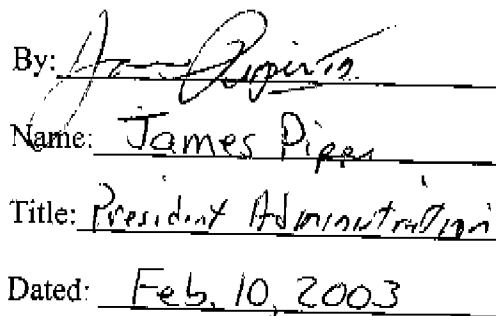 By:
Name: James Piper
Title: President Administration
Dated: Feb. 10, 2003